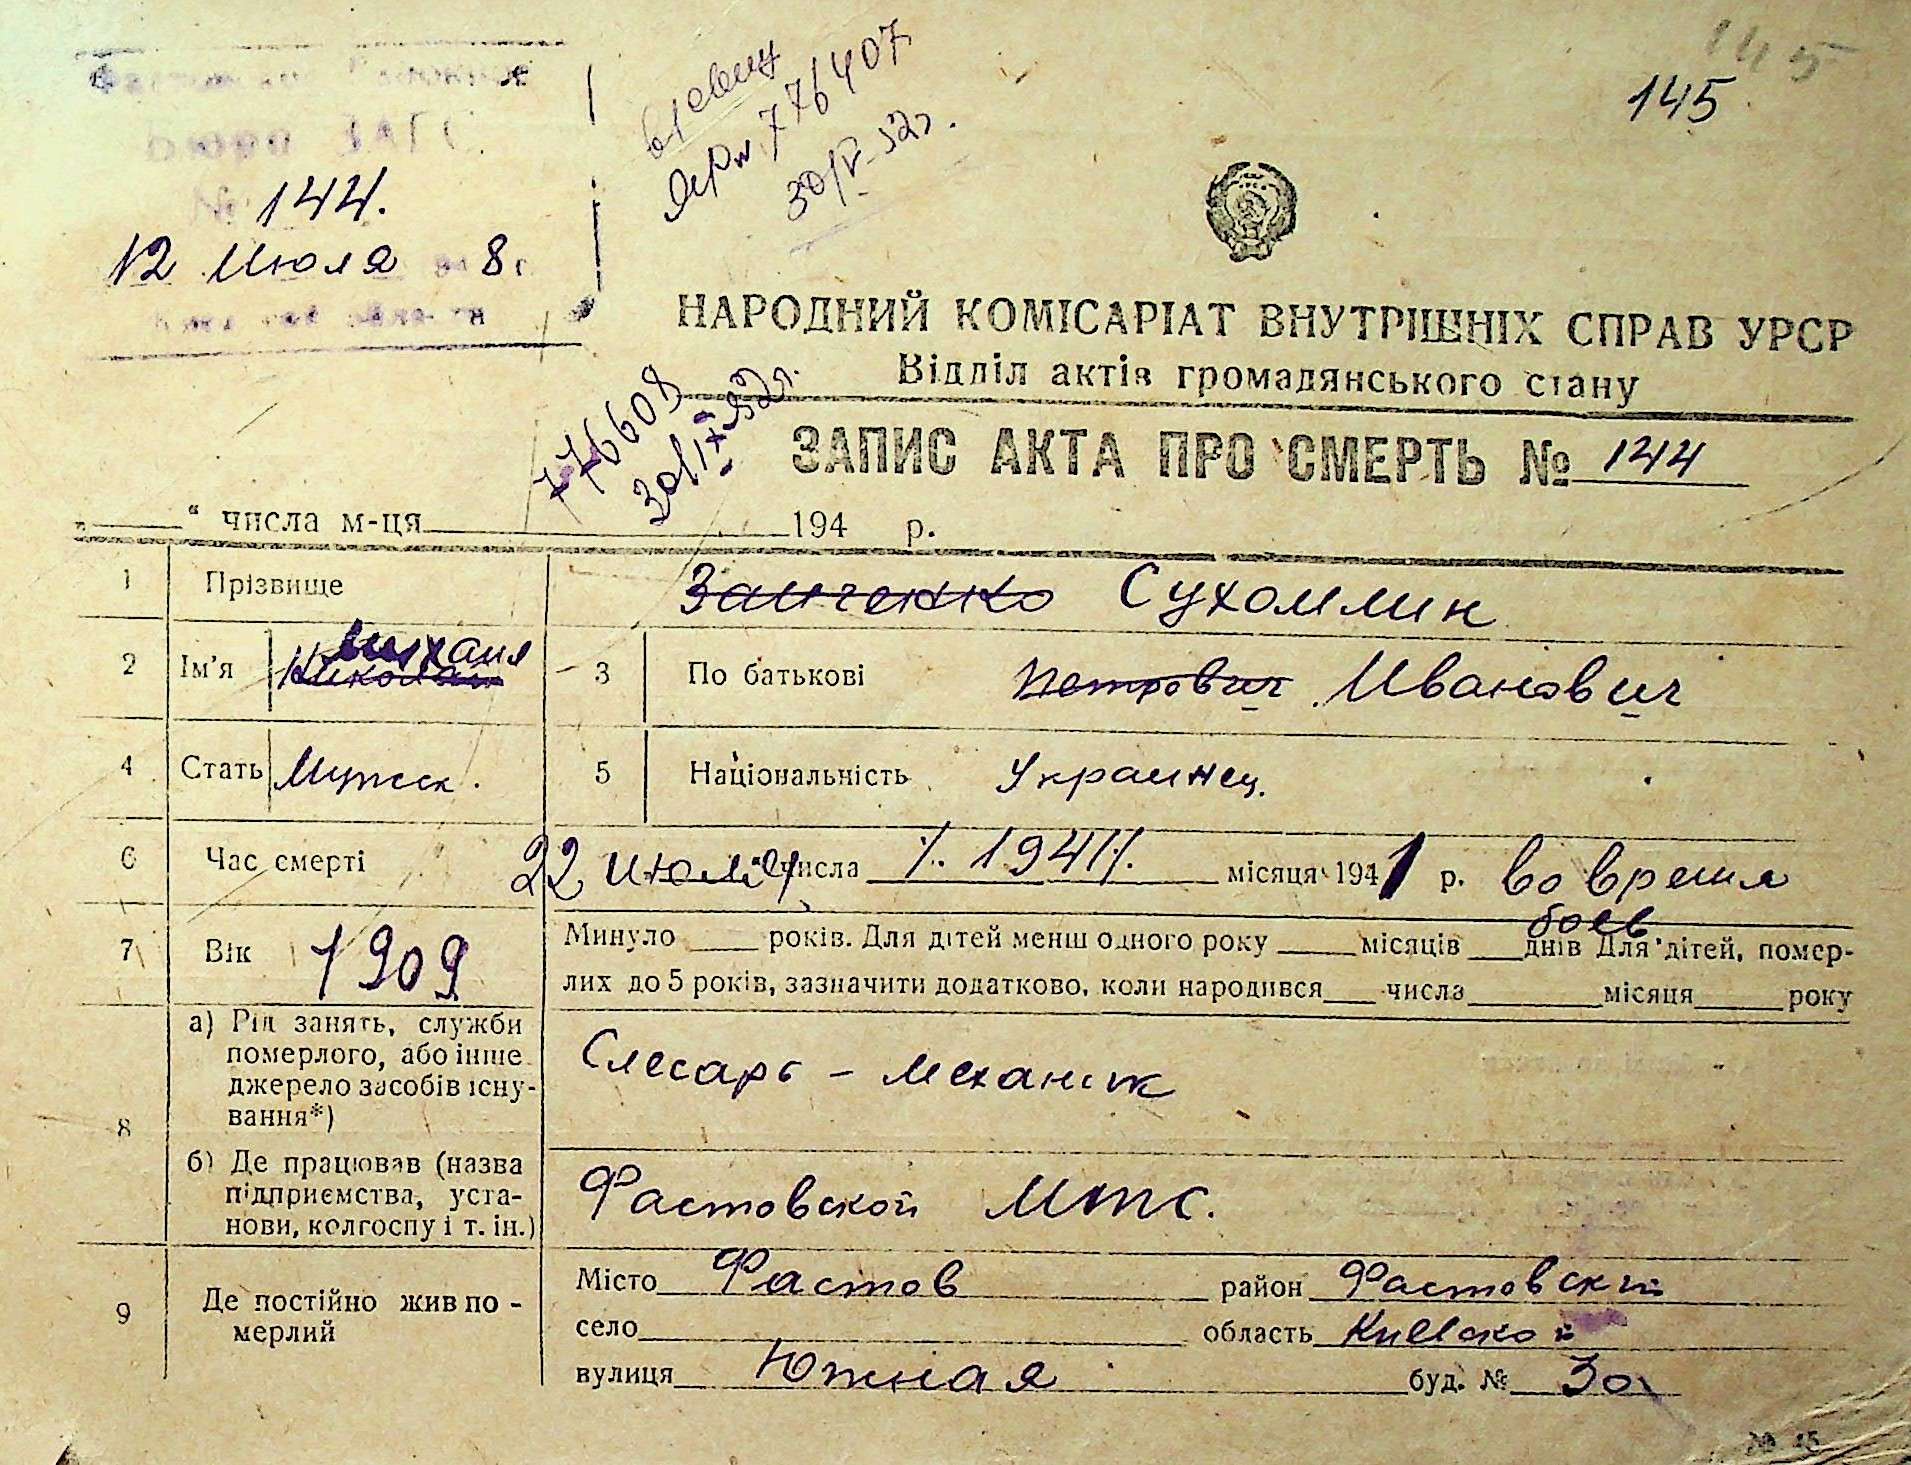 145
145
776407
30/V-52г.
144.
12 Июля 8
НАРОДНИЙ КОМІСАРІАТ ВНУТРІШНІХ СПРАВ УРСР
Відділ актів громадянського стану
776608
30/IX-52г.
ЗАПИС АКТА ПРО СМЕРТЬ № 144
„ “ числа м-ця 194 р.
1 Прізвище Заиченко Сухомлин
2 Ім'я Николай Михаил 3 По батькові Петрович Иванович
4 Стать Мужск. 5 Національність Украинец.
6 Час смерті 22 июля числа 1941 місяця 1941 р. во время боев
7 Вік 1909 Минуло років. Для дітей менш одного року місяців днів Для дітей, помер-
лих до 5 років, зазначити додатково, коли народився числа місяця року
8 а) Рід занять, служби
померлого, або інше
джерело засобів існу-
вання*)
Слесарь - механик
б) Де працював (назва
підприємства, уста-
нови, колгоспу і т. ін.)
Фастовской МТС.
9 Де постійно жив по-
мерлий
Місто Фастов район Фастовский
село область Киевской
вулиця Южная буд. № 30